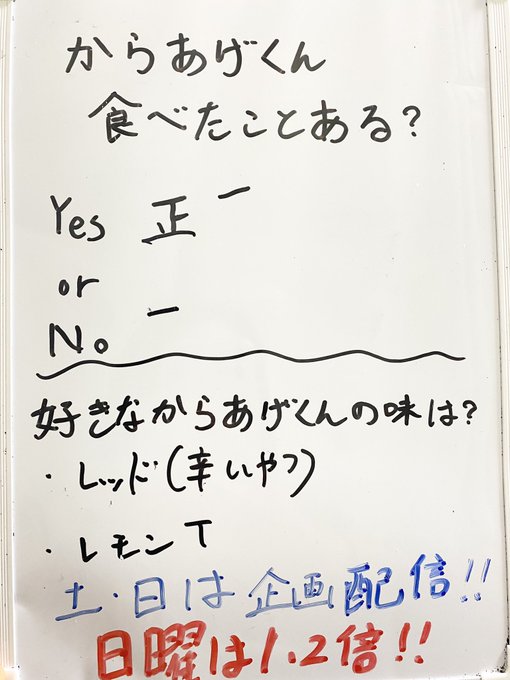 からあげくん
食べたことある?
Yes 正一
or
No 一
好きなからあげくんの味は?
・レッド(辛いやつ)
・レモン T
土・日は企画配信!!
日曜は1.2倍!!